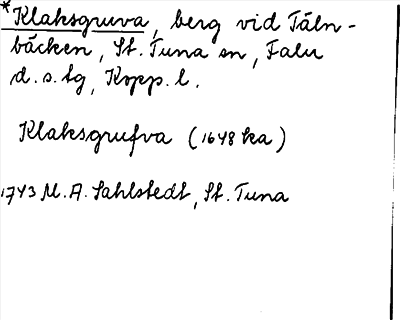 *Klaksgruva, berg vid Täln-
bäcken, St. Tuna sn, Falu
d.s. tg, Kopp. l.
Klaksgrufva (1648 ka)
1743 M. A. Sahlstedt, St. Tuna